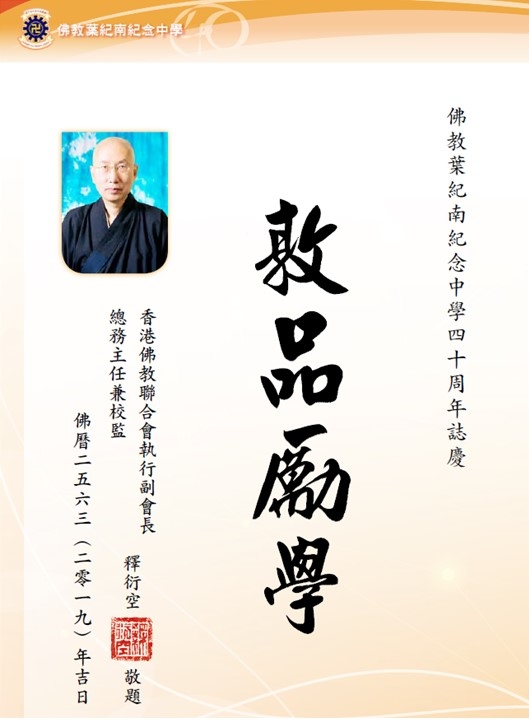 佛教葉紀南紀念中學
佛教葉紀南紀念中學四十周年誌慶
敦品勵學
香港佛教聯合會執行副會長
總務主任兼校監
釋衍空
敬題
佛曆二五六三（二零一九）年吉日